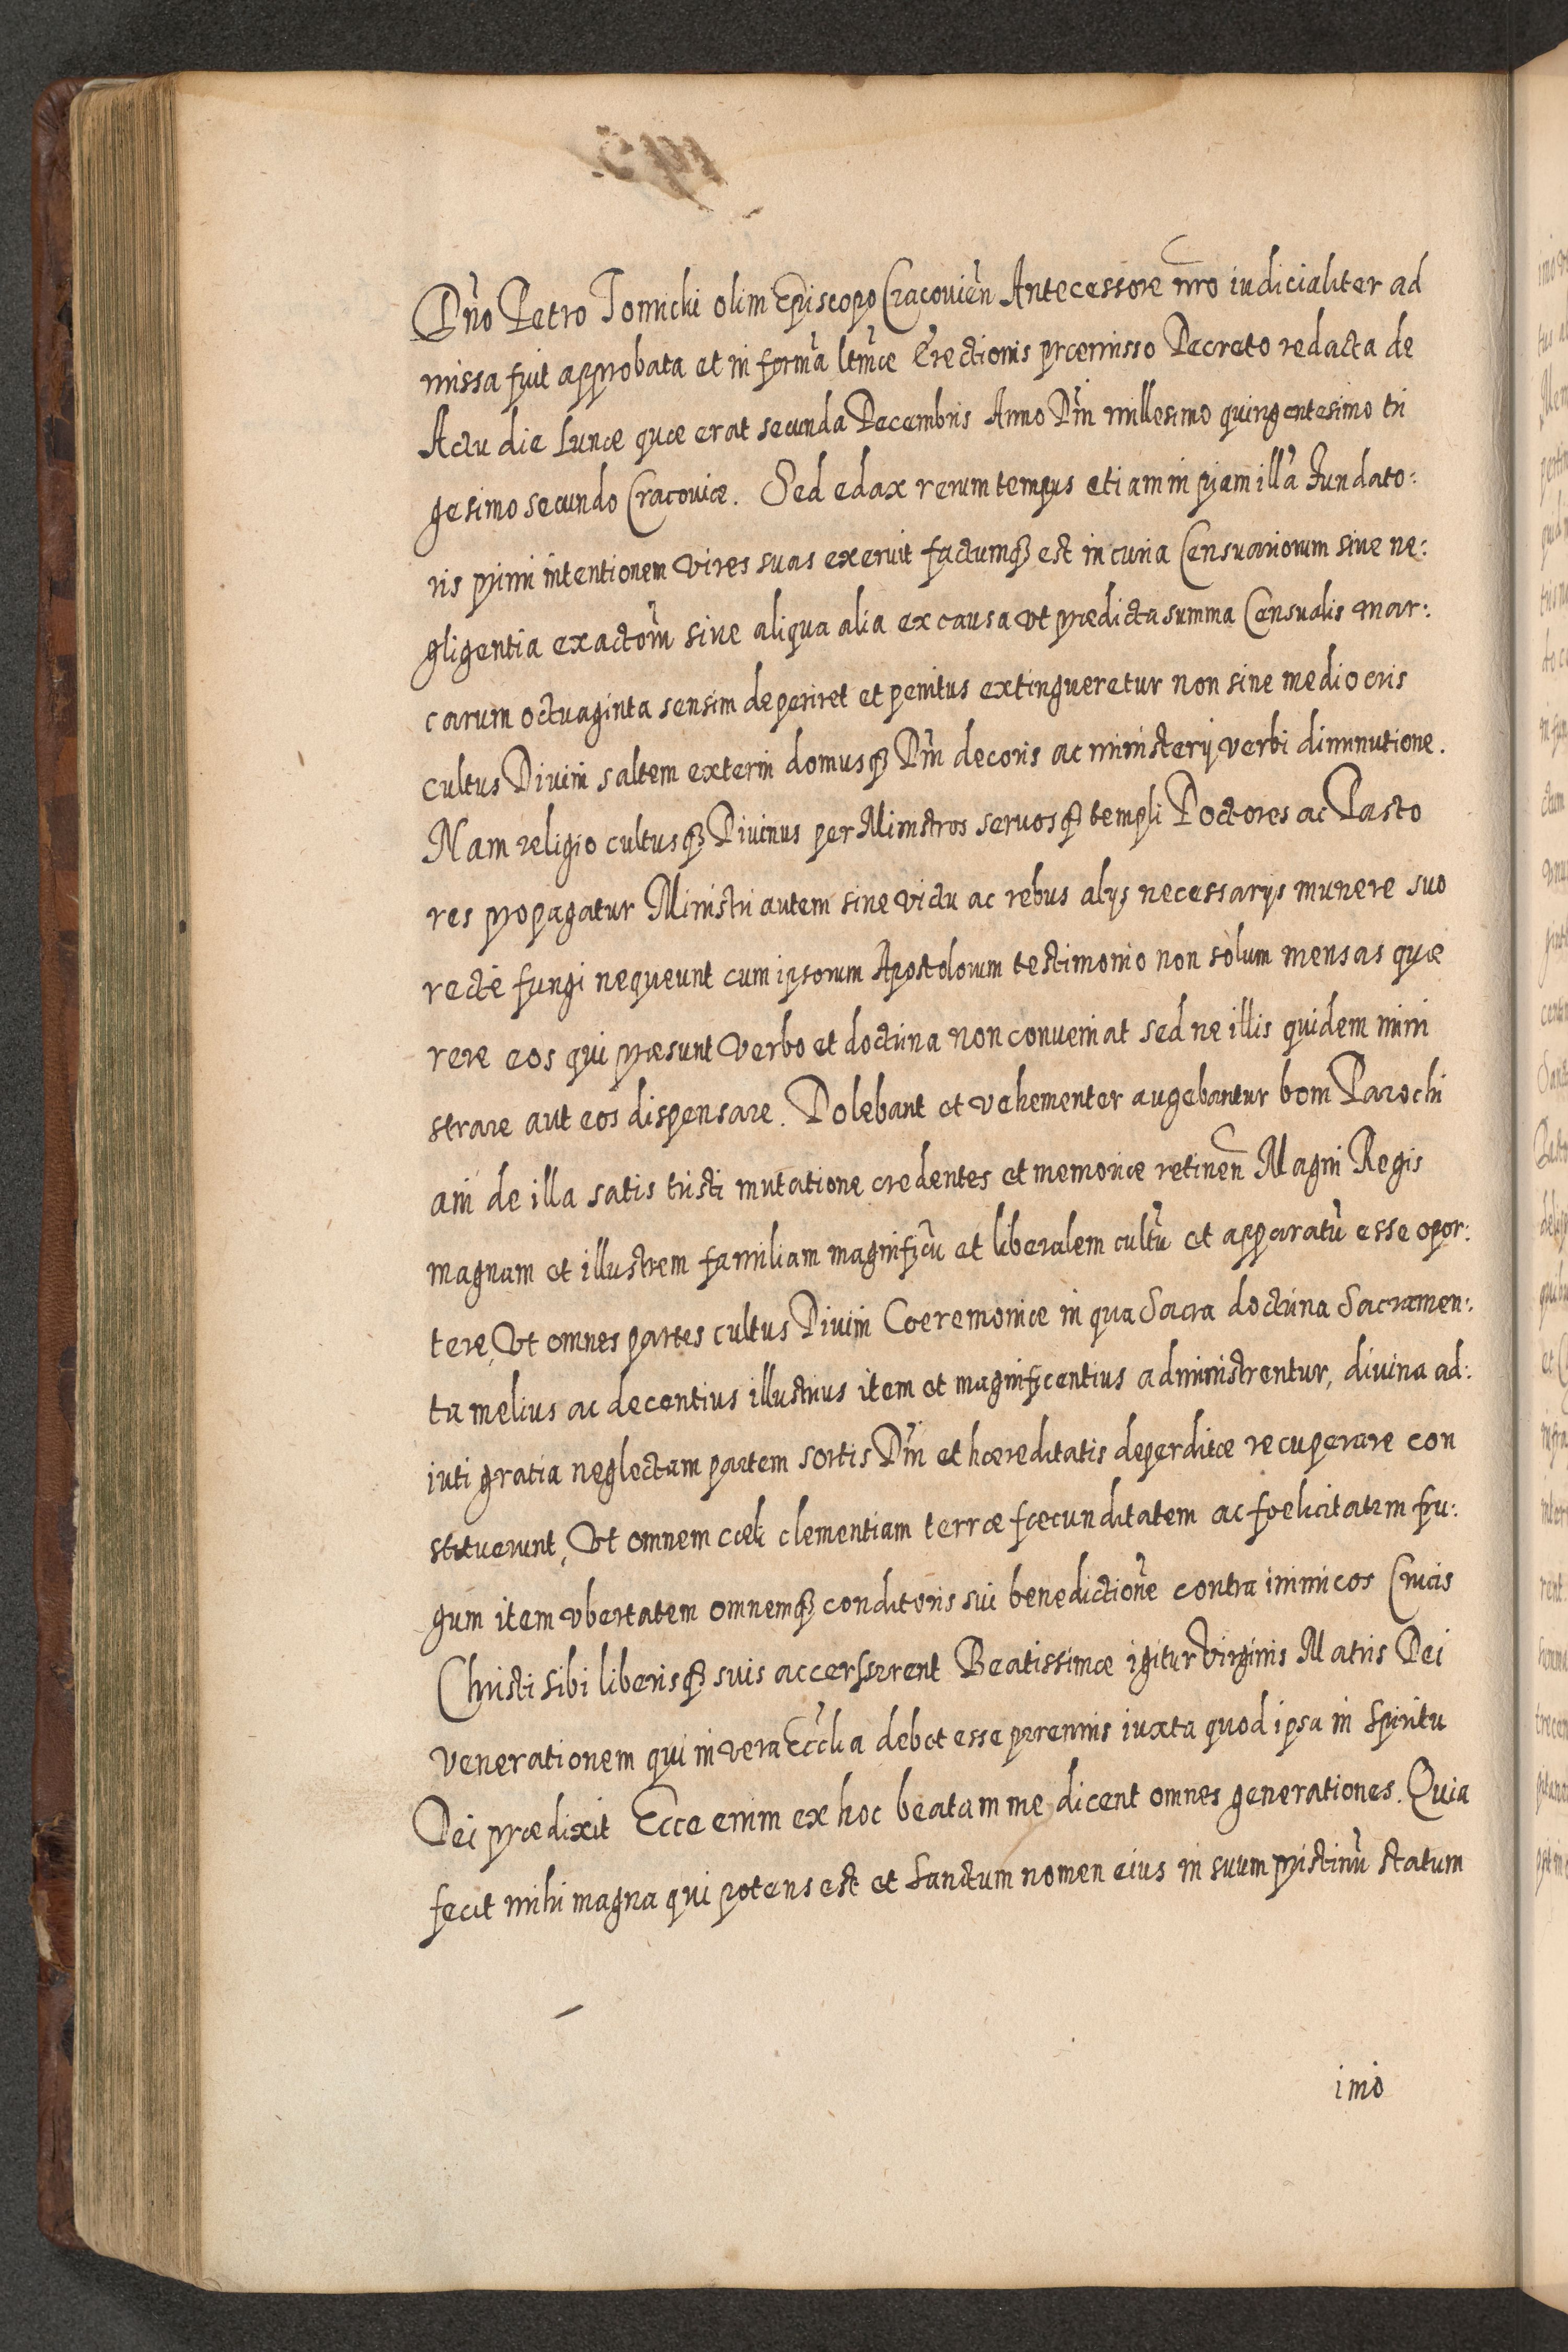 Dn̄o Petro Tomicki olim Episcopo Cracovien̄ Antecessore n̄ro iudicialiter ad
missa fuit approbata et in forma ltrarū Erectionis præmisso Decreto redacta de
Actu die Lunæ quæ erat secunda Decembris Anno Dn̄i millesimo quingentesimo tri
gesimo secundo Cracoviæ. Sed edax rerum tempus etiam in piam illā Fundato:
ris primi intentionem vires suas exeruit factumq3 est incuria Censuariorum siue ne:
gligentia exactorū siue aliqua alia ex causa vt prædicta summa Censualis mar:
carum octuaginta sensim deperiret et penitus extingueretur non sine mediocris
cultus Diuini saltem externi domusq3 Dn̄i decoris ac ministerij verbi diminutione.
Nam religio cultusq3 Diuinus per Ministros seruosq3 templi Doctores ac Pasto
res propagatur Ministri autem sine victu ac rebus alijs necessarijs munere suo
rectè fungi nequeunt cum ipsorum Apostolorum testimonio non sòlum mensas quæ
rere eos qui præsunt verbo et doctrina non conueniat sed ne illis quidem mini
strare aut eos dispensare. Dolebant et vehementer augebantur boni Parochi
ani de illa satis tristi mutatione credentes et memoriæ retinen̄ Magni Regis
magnam et illustrem familiam magnificū et liberalem cultū et apparatū esse opor:
tere, Vt omnes partes cultus Diuini Cœremoniæ in qua Sacra doctrina Sacramen:
ta melius ac decentius illustrius item et magnificentius administrentur, diuina ad:
iuti gratia neglectam partem sortis Dn̄i et hæreditatis deperditæ recuperare con
stituerunt, Vt omnem cœli clementiam terræ fœcunditatem ac fœlicitatem fru:
gum item vbertatem omnemq3 conditoris sui benedictionē contra inimicos Crucis
Christi sibi liberisq3 suis accerserent Beatissimæ igitur Virginis Matris Dei
venerationem qui in vera Eccl̄ia debet esse perennis iuxta quod ipsa in Spiritu
Dei prædixit Ecce enim ex hoc beatam me dicent omnes generationes. Quia
fecit mihi magna qui potens est et Sanctum nomen eius in suum pristinū statum
imò